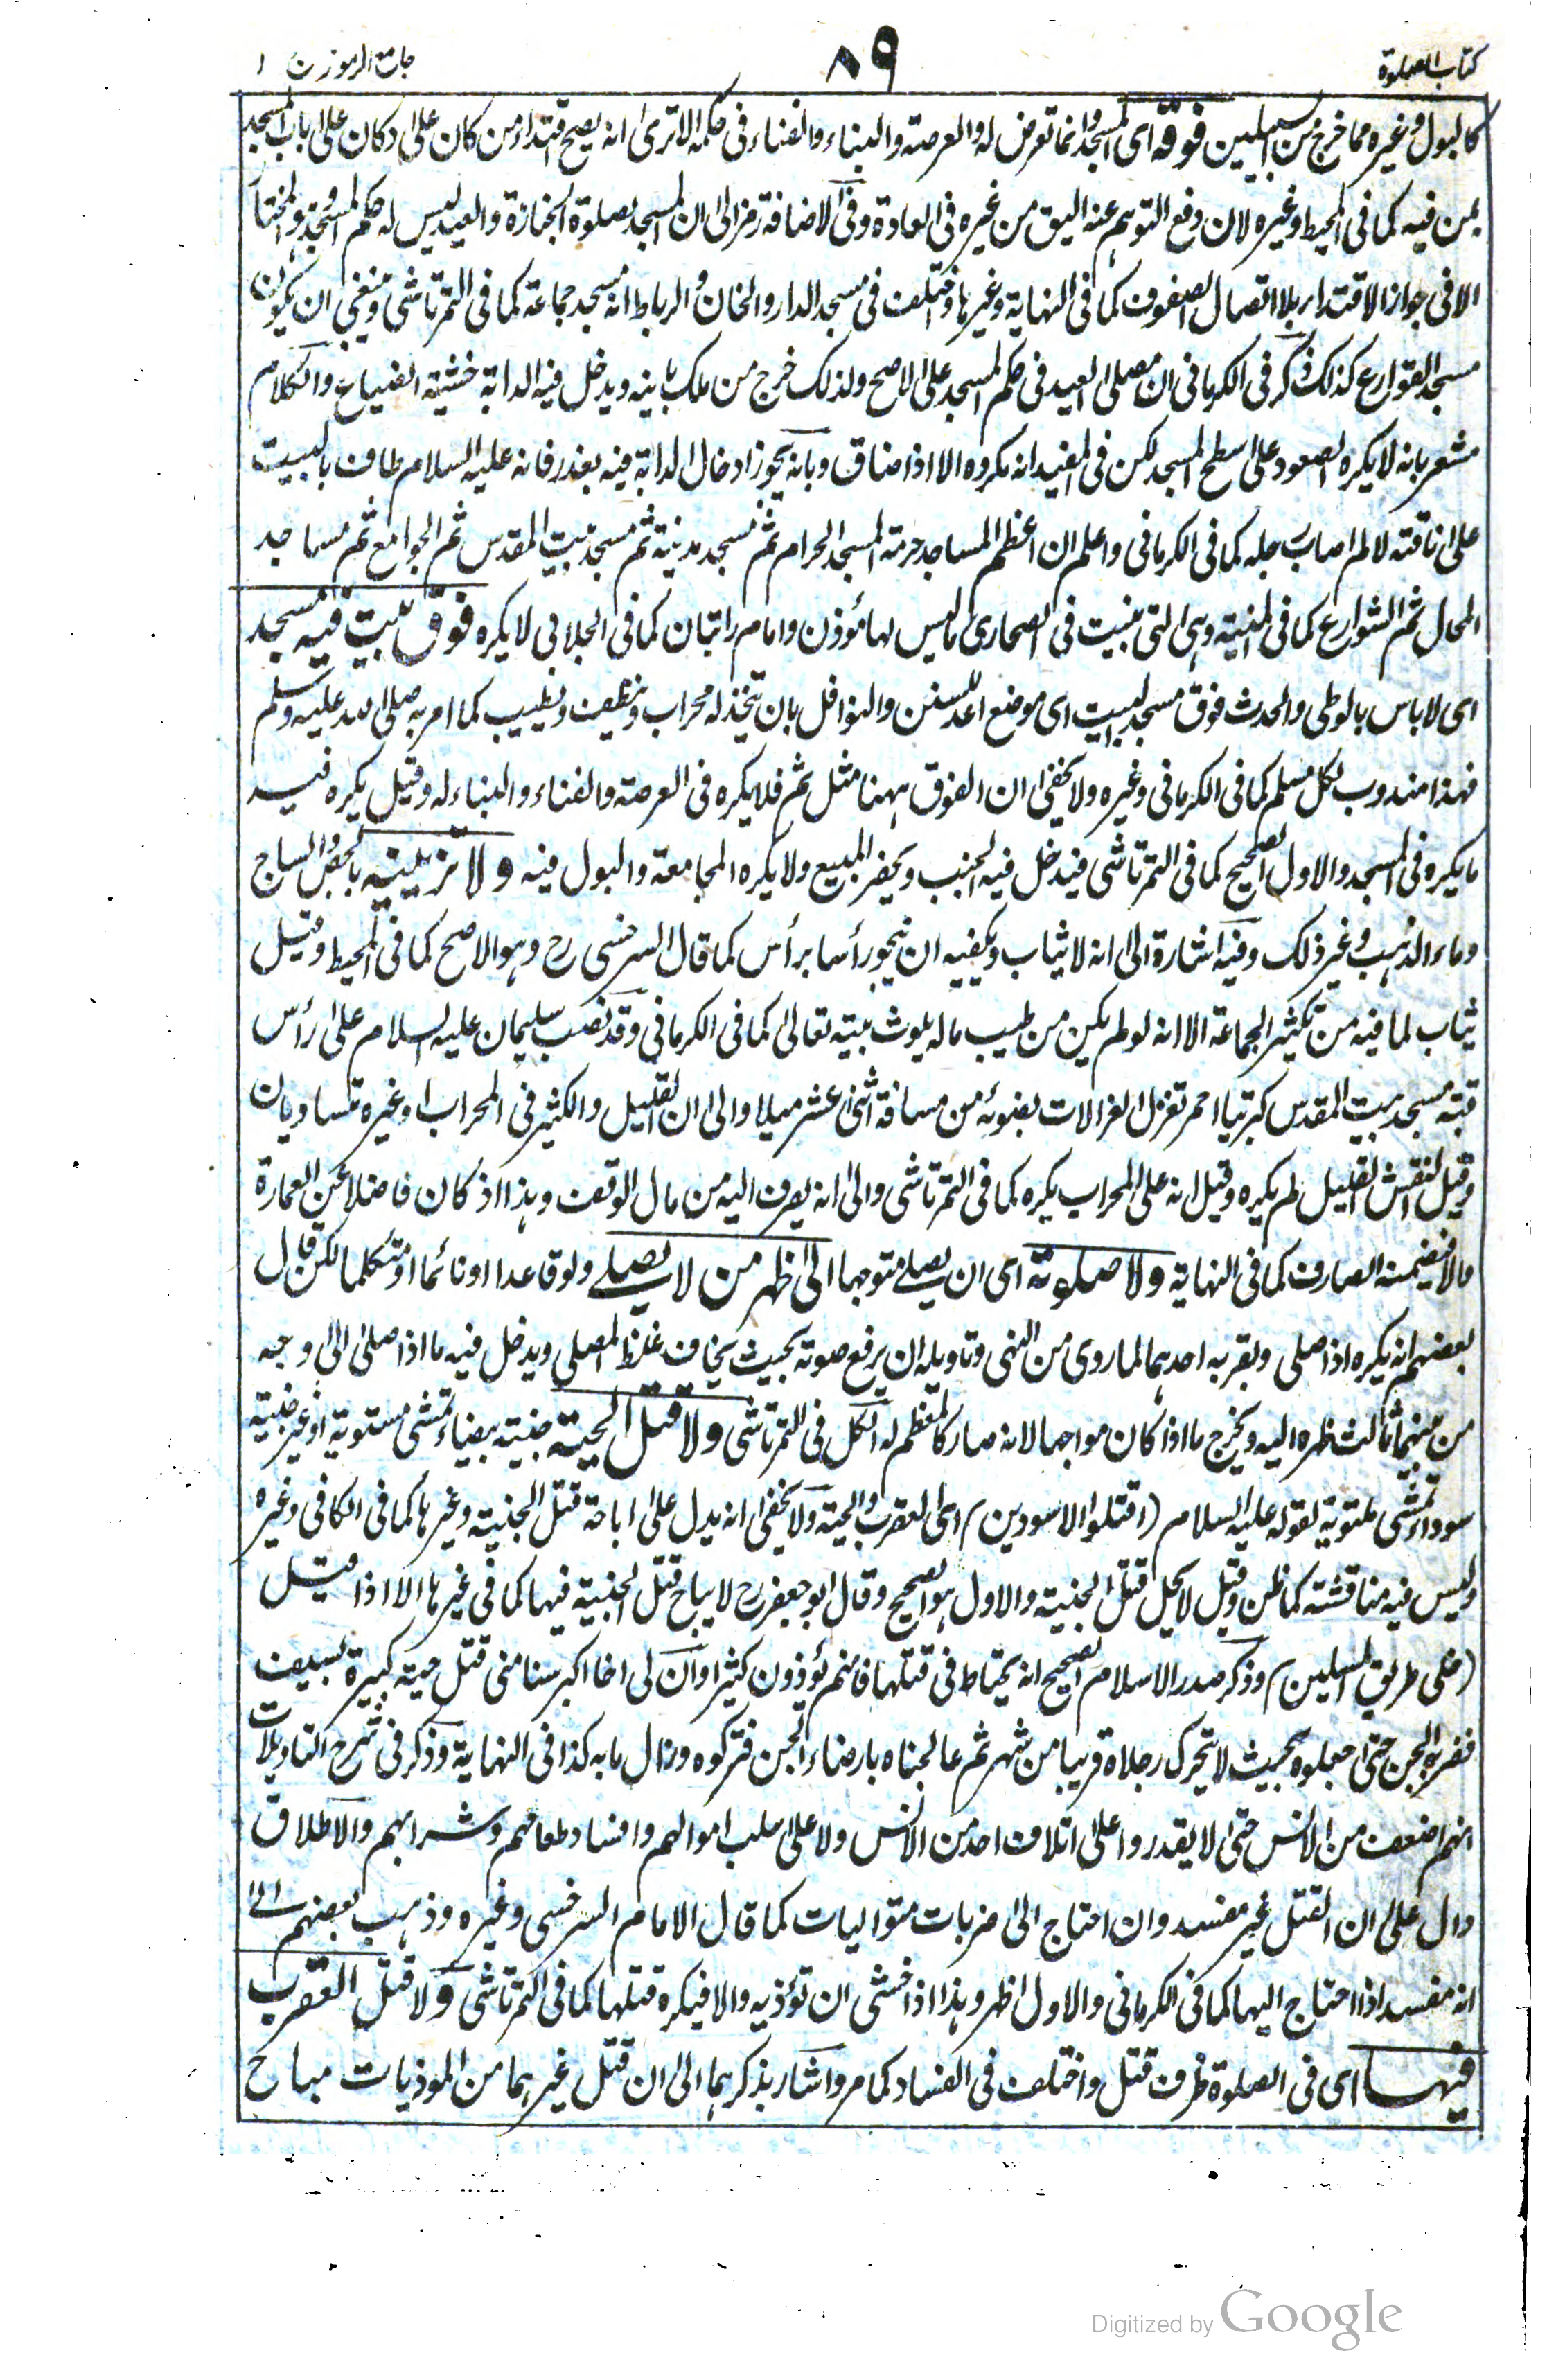 كتاب الصلوة
٨٩
جامع الرموز ج ١
كالبول وغيره مما خرج من السبيلين فوقه اى المسجد وانما تعرض له والعرصة والبناء والفناء فى حكمه الا ترى انه يصح اقتداء من كان على دكان على باب المسجد
بمن فيه كما فى المحيط وغيره لان دفع التوهم عنه اليق من غيره فى العادة وفى الاضافة رمز الى ان المسجد لصلوة الجنازة والعيد ليس له حكم المسجد وهو المختار
الا فى جواز الاقتداء بلا اتصال الصفوف كما فى النهاية وغيرها واختلف فى مسجد الدار والخان والرباط انه مسجد جماعة كما فى التمرتاشى وينبغى ان يكون
مسجد القوارع كذلك وذكر فى الكرمانى ان مصلى العيد فى حكم المسجد على الاصح ولذلك خرج من ملك بانيه ويدخل فيه الدابة خشية الضياع والكلام
مشعر بانه لا يكره الصعود على سطح المسجد لكن فى المفيد انه مكروه الا اذا ضاق وبانه يجوز ادخال الدابة فيه بعذر فانه عليه السلام طاف بالبيت
على ناقته لالم اصاب رجله كما فى الكرمانى واعلم ان اعظم المساجد حرمة المسجد الحرام ثم مسجد مدينة ثم مسجد بيت المقدس ثم الجوامع ثم مساجد
المحال ثم الشوارع كما فى المنية وهى التى بنيت فى الصحارى ما ليس لها مؤذن وامام راتبان كما فى الجلابى لا يكره فوق بيت فيه مسجد
اى لا باس بالوطى والحدث فوق مسجد البيت اى موضع اعد للسنن والنوافل بان يتخذ له محراب وينظف ويطيب كما امر به صلى الله عليه وسلم
فهذا مندوب لكل مسلم كما فى الكرمانى وغيره ولا يخفى ان الفوق ههنا مثل ثم فلا يكره فى العرصة والفناء والبناء له وقيل يكره فيه
ما يكره فى المسجد والاول الصحيح كما فى التمرتاشى فيدخل فيه الجنب ويحضر المبيع ولا يكره المجامعة والبول فيه ولا تزيينه بالجص والساج
وماء الذهب وغير ذلك وفيه اشارة الى انه لا يثاب ويكفيه ان ينجو رأسا برأس كما قال السرخسى رح وهو الاصح كما فى المحيط وقيل
يثاب لما فيه من تكثير الجماعة الا انه لو لم يكن من طيب ماله يلوث بيته تعالى كما فى الكرمانى وقد نصب سليمان عليه السلام على رأس
قبة مسجد بيت المقدس كبرتيا احمر تغزل الغزالات بضوئه من مسافة اثنى عشر ميلا والى ان القليل والكثير فى المحراب وغيره متساويان
وقيل النقش القليل لم يكره وقيل انه على المحراب يكره كما فى التمرتاشى والى انه يصرف اليه من مال الوقف وهذا اذ كان فاضلا عن العمارة
والا فيضمنه الصارف كما فى النهاية ولا صلوته اى ان يصلى متوجها الى ظهر من لا يصلى ولو قاعدا او نائما او متكلما لكن قال
بعضهم انه يكره اذا صلى وبقربه احدهما لما روى من النهى وتاويله ان يرفع صوته بحيث يخاف غلظ المصلى ويدخل فيه ما اذا صلى الى وجه
من بينهما ثالث ظهره اليه ويخرج ما اذا كان مواجها لانه صار كالمعظم له الكل فى التمرتاشى ولا قتل الحية جنية بيضاء تمشى مستوية او غير جنية
سوداء تمشى ملتوية لقوله عليه السلام (اقتلوا الاسودين) اى العقرب والحية ولا يخفى انه يدل على اباحة قتل الجنية وغيرها كما فى الكافى وغيره
وليس فيه مناقشة كما ظن وقيل لا يحل قتل الجنية والاول هو الصحيح وقال ابو جعفر رح لا يباح قتل الجنية فيها كما فى غيرها الا اذا قيل
(خلى طريق المسلمين) وذكر صدر الاسلام الصحيح انه يحتاط فى قتلها فانهم يؤذون كثيرا وان لى اخا اكبر سنا منى قتل حية كبيرة بسيف
فضربه الجن حتى جعلوه بحيث لا يتحرك رجلاه قريبا من شهر ثم عالجناه بارضاء الجن فتركوه وزال ما به كذا فى النهاية وذكر فى شرح التاويلات
انهم اضعف من الانس حتى لا يقدروا على اتلاف احد من الانس ولا على سلب اموالهم وافساد طعامهم وشرابهم والاطلاق
دال على ان القتل غير مفسد وان احتاج الى ضربات متواليات كما قال الامام السرخسى وغيره وذهب بعضهم الى
انه مفسد اذا احتاج اليها كما فى الكرمانى والاول اظهر وهذا اذا خشى ان تؤذيه والا فيكره قتلها كما فى التمرتاشى ولا قتل العقرب
فيها اى فى الصلوة ظرف قتل واختلف فى الفساد كما مر واشار بذكرهما الى ان قتل غيرهما من الموذيات مباح
Digitized by Google